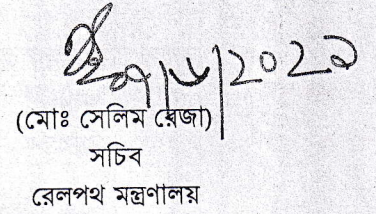 ২০২১
(মোঃ সেলিম রেজা)
সচিব
রেলপথ মন্ত্রণালয়